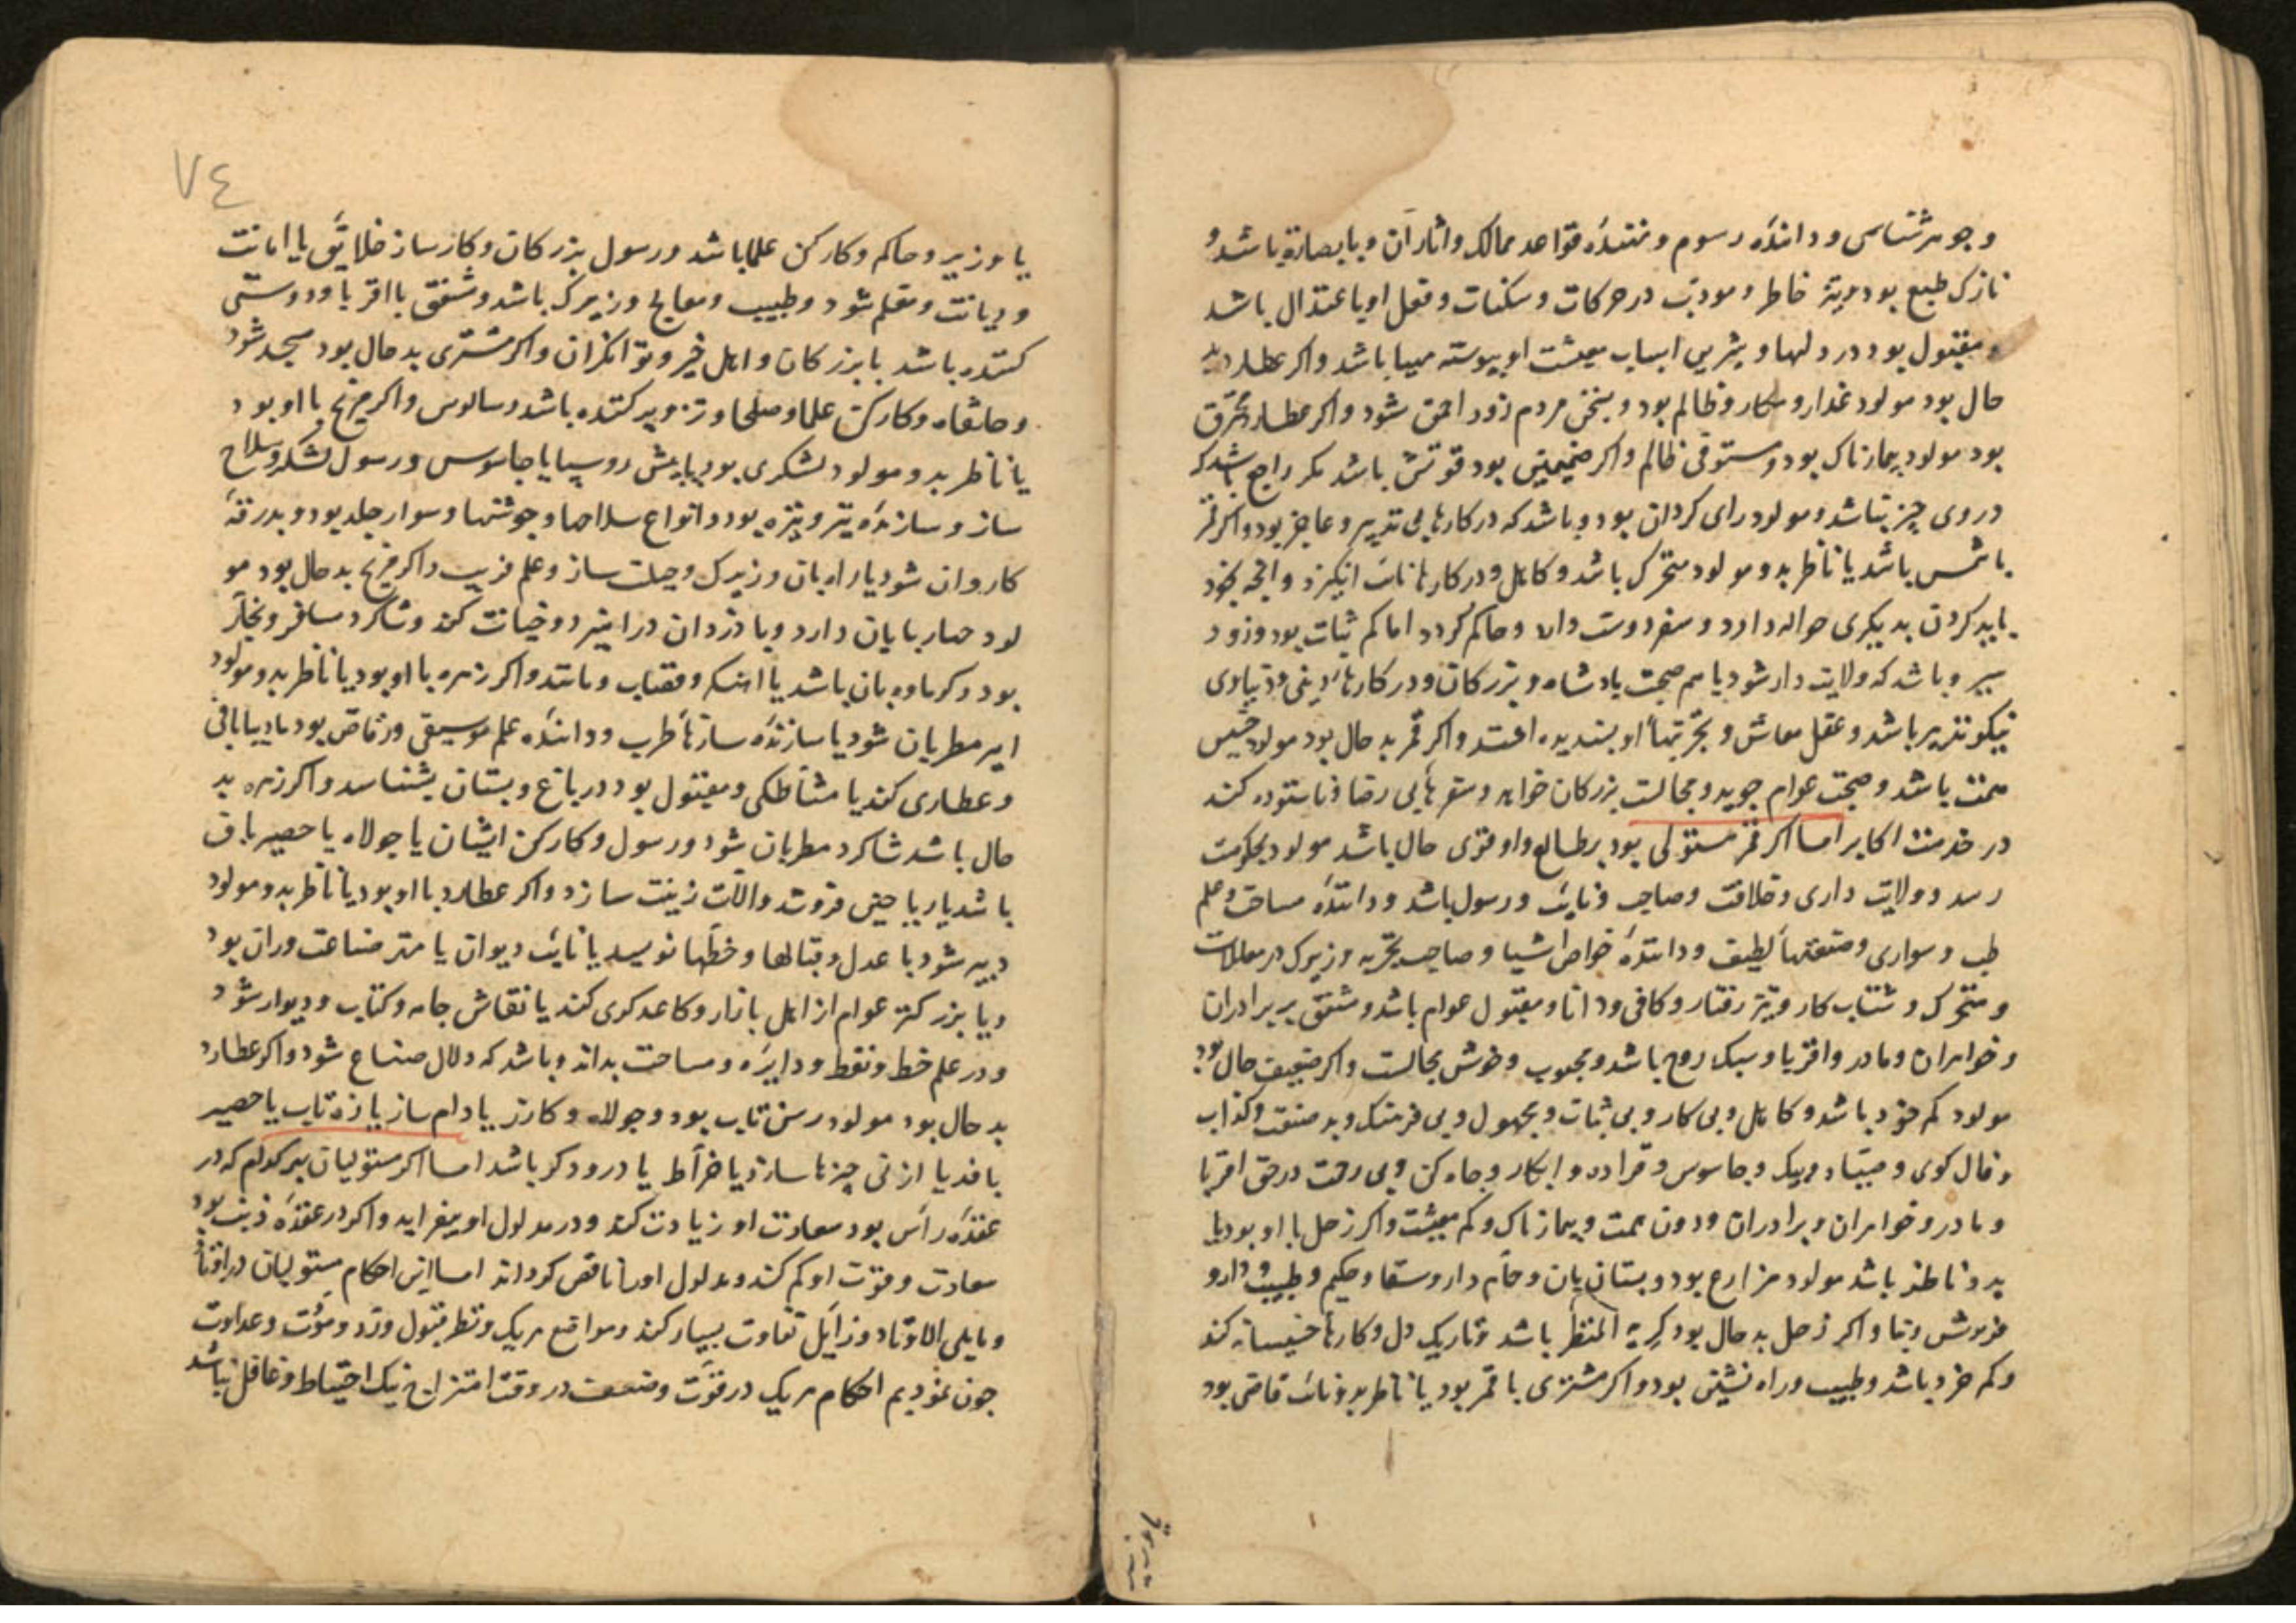 و جوهرشناسی و دانندهٔ رسوم و قواعد ممالک و اثار آن و بابصارة باشد و
نازک طبع بود خاطر و مودب در حرکات و سکنات و فعل او باعتدال باشد
و مقبول بود در دلها و اسباب معیشت او پیوسته مهیا باشد و اکر عطارد بد
حال بود مولود غدار و مکار و ظالم بود و بسخن مردم زود احمق شود و اکر عطارد محترق
بود مولود بیمارناک بود و مستوفی ظالم و اکر صمیمی بود قوتش باشد مکر راجع باشد که
در وی چیز نباشد و مولود رای کردان بود و باشد که در کارها بی تدبیر و عاجز بود و اکر قمر
با شمس باشد یا ناظر بدو مولود متحرک باشد و کاهل و در کارها انکیزد و انچه خود
باید کردن بدیکری حواله دارد و سفر دوست دارد و حاکم کردد اما کم ثبات بود و زود
سیر و باشد که ولایت دار شود یا هم صحبت پادشاه و بزرکان و در کارهاء دینی و دنیاوی
نیکو تدبیر باشد و عقل معاش و تجربتهاء او پسندیده افتد و اکر قمر بد حال بود مولود خسیس
همت باشد و صحبت عوام جوید و مجالست بزرکان خواهد و سفرهاء بی رضا و ناستوده کند
در خدمت اکابر اما اکر قمر مستولی بود بر طالع و او قوی حال باشد مولود بحکومت
رسد و ولایت داری و خلافت و صاحب و نایب و رسول باشد و دانندهٔ مساحت و علم
طب و سواری و صنعتهاء لطیف و دانندهٔ خواص اشیا و صاحب تجربه و زیرک در معاملات
و متحرک و شتاب کار و تیز رفتار و کافی و دانا و مقبول عوام باشد و مشفق بر برادران
و خواهران و مادر و اقربا و سبک روح باشد و محبوب و خوش مجالست و اکر ضعیف حال بود
مولود کم خرد باشد و کاهل و بی کار و بی ثبات و مجهول و بی فرهنک و بد صنعت و کذاب
و فال کوی و صیاد و پیک و جاسوس و و چاه کن و بی رحمت در حق اقربا
و مادر و خواهران و برادران و دون همت و بیمارناک و کم معیشت و اکر زحل با او بود یا
بدو ناظر باشد مولود مزارع بود و بستان بان و حمام دار و سقا و حکیم و طبیب و دارو
فروش و بنا و اکر زحل بد حال بود کریه المنظر باشد و تاریک دل و کارهاء خسیسانه کند
و کم خرد باشد و طبیب و راه نشینی بود و اکر مشتری با قمر بود یا ناظر بدو نایب قاضی بود
٧٤
یا وزیر و حاکم و کارکن علما باشد و رسول بزرکان و کارساز خلایق با امانت
و دیانت و معلم شود و طبیب و معالج و زیرک باشد و مشفق با اقربا و دوستی
کننده باشد با بزرکان و اهل خیر و توانکران و اکر مشتری بد حال بود مسجد شود
و خانقاه و کارکن علما و صلحا و تزویر کننده باشد و سالوس و اکر مریخ با او بود
یا ناظر بدو مولود لشکری بود یا پیش رو سپاه یا جاسوس و رسول لشکر و سلاح
ساز و سازندهٔ تیر و نیزه بود و انواع سلاحها و جوشنها و سوار جلد بود و بدرقهٔ
کاروان شود یا راه بان و زیرک و حیلت ساز و علم فریب و اکر مریخ بد حال بود مو
لود حمار بایان دارد و با دزدان درامیزد و خیانت کند و شاکرد مسافر و تجار
بود و کرماوه بان باشد یا آهنکر و قصاب و مانند و اکر زهره با او بود یا ناظر بدو مولود
امیر مطربان شود یا سازندهٔ سازهاء طرب و دانندهٔ علم موسیقی و رقاص بود یا دیبابافی
و عطاری کند یا مشاطکی و مقبول بود در باغ و بستان بشناسد و اکر زهره بد
حال باشد شاکرد مطربان شود و رسول و کارکن ایشان یا جولاه یا حصیرباف
باشد یا ریاحین فروشد و آلات زینت سازد و اکر عطارد با او بود یا ناظر بدو مولود
دبیر شود با عدل و قبالها و خطها نویسد یا نایب دیوان یا مهتر صناعت وران بود
و یا بزرکتر عوام از اهل بازار و کاغدکری کند یا نقاش جامه و کتاب و دیوار شود
و در علم خط و نقط و دایره و مساحت بداند و باشد که دلال صناع شود و اکر عطارد
بد حال بود مولود رسن تاب بود و جولاه و کارز یا دام ساز یا زه تاب یا حصیر
بافد یا از نی چیزها سازد یا خراط یا درودکر باشد اما اکر مستولیان هر کدام که در
عقدهٔ رأس بود سعادت او زیادت کند و در مدلول او بیفزاید و اکر در عقدهٔ ذنب بود
سعادت و قوت او کم کند و مدلول او را ناقص کرداند اما این احکام مستولیان در اوتاد
و مایلی الاوتاد و زایل تفاوت بسیار کند و مواقع هر یک و نظر قبول و رد و موّت و عداوت
چون نمودیم احکام هر یک در قوّت و ضعف در وقت امتزاج نیک احتیاط و غافل نباشد